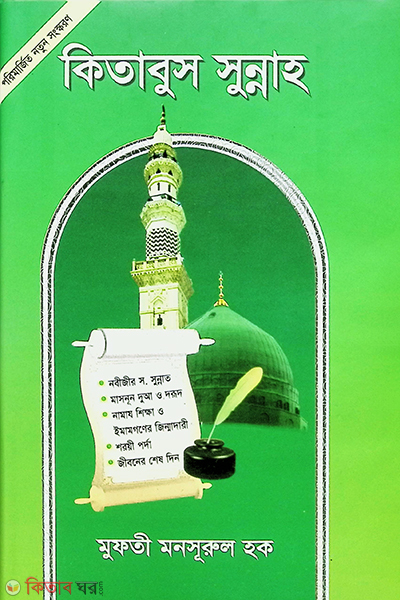 পরিমার্জিত নতুন সংস্করণ
কিতাবুস সুন্নাহ
নবীজীর স. সুন্নাত
মাসনূন দুআ ও দরূদ
নামায শিক্ষা ও
ইমামগণের জিম্মাদারী
শরয়ী পর্দা
জীবনের শেষ দিন
মুফতী মনসূরুল হক
কিতাব ঘর.com